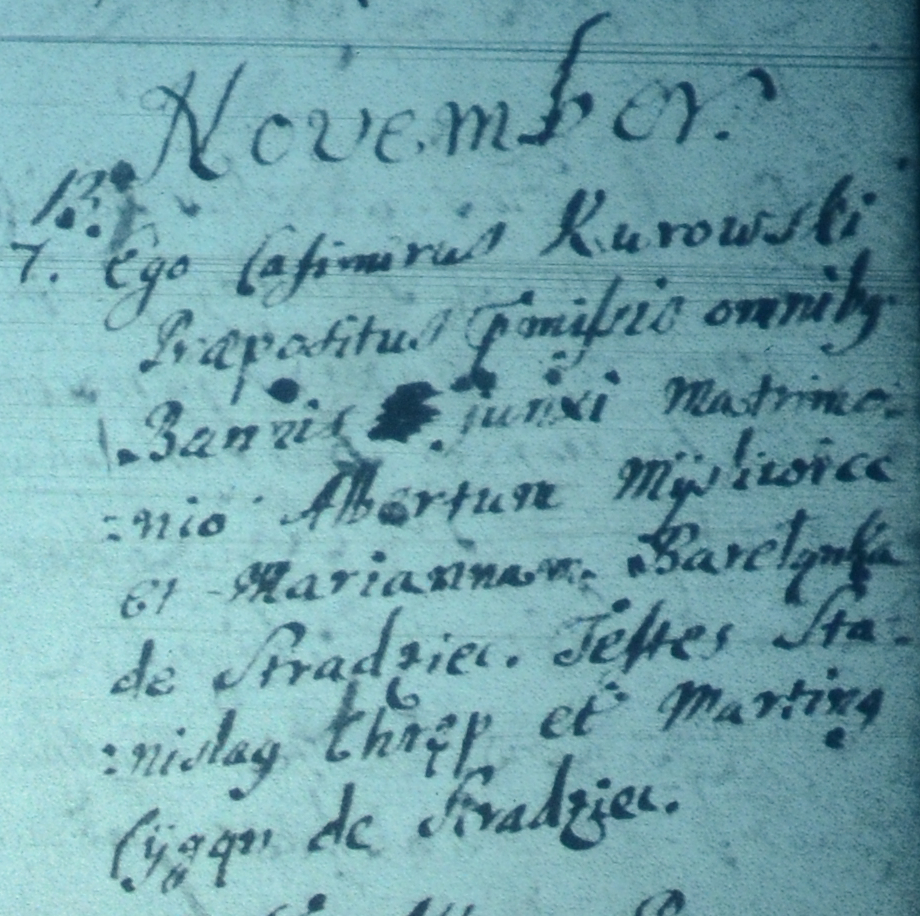 November.
12.
7. Ego Casimirus Kurowski
Præpositus p̄missis omnibꝫ
Bannis junxi Matrimo:
:nio Albertum Myśliwiec
et Mariannam
de Stradziec. Testes Sta:
:nislaꝰ Chrząp et Martinꝰ
Cÿgan de Stradziec.